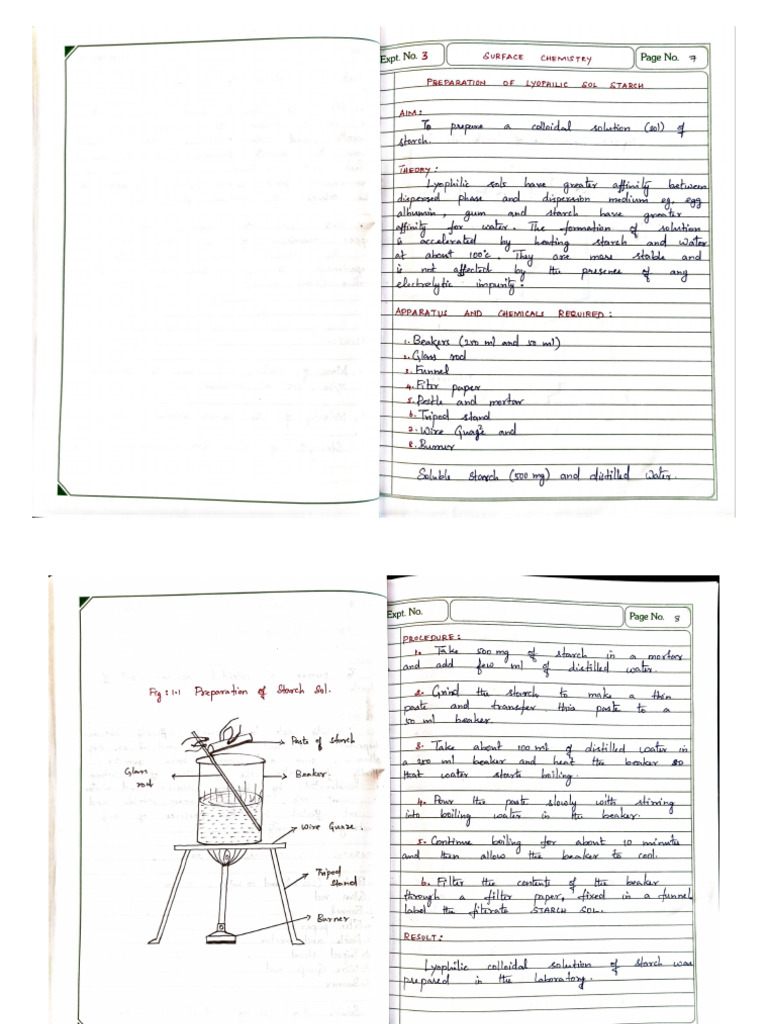 Expt. No. 3
SURFACE CHEMISTRY
Page No. 7
PREPARATION OF LYOPHILIC SOL STARCH
AIM:
To prepare a colloidal solution (sol) of
starch.
THEORY:
Lyophilic sols have greater affinity between
dispersed phase and dispersion medium eg. egg
albumin, gum and starch have greater
affinity for water. The formation of solution
is accelerated by heating starch and water
at about 100°c. They are more stable and
is not affected by the presence of any
electrolytic impurity.
APPARATUS AND CHEMICALS REQUIRED:
1. Beakers (250 ml and 50 ml)
2. Glass rod
3. Funnel
4. Filter paper
5. Pestle and mortar
6. Tripod stand
7. Wire Guaze and
8. Burner
Soluble starch (500 mg) and distilled water.
Fig: 1.1 Preparation of Starch Sol.
Paste of starch
Glass
rod
Beaker.
Wire Guaze.
Tripod
Stand
Burner.
Expt. No.
Page No. 8
PROCEDURE:
1. Take 500 mg of starch in a mortar
and add few ml of distilled water.
2. Grind the starch to make a thin
paste and transfer this paste to a
50 ml beaker.
3. Take about 100 ml of distilled water in
a 250 ml beaker and heat the beaker so
that water starts boiling.
4. Pour the paste slowly with stirring
into boiling water in the beaker.
5. Continue boiling for about 10 minutes
and then allow the beaker to cool.
6. Filter the contents of the beaker
through a filter paper, fixed in a funnel
label the filterate STARCH SOL.
RESULT:
Lyophilic colloidal solution of starch was
prepared in the laboratory.